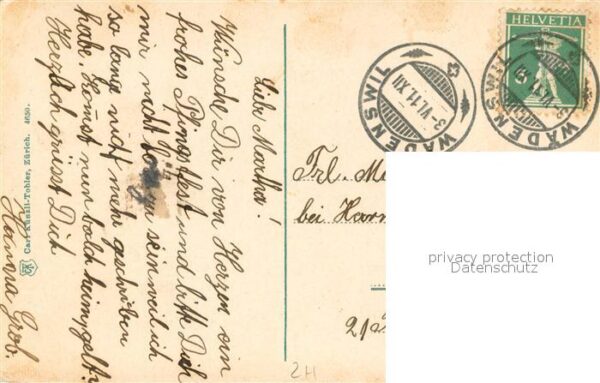 Liebe Martha!
Wünsche Dir von Herzen ein
frohes Pfingstfest und bitte Dich
mir nicht böse zu sein weil ich
so lang nicht mehr geschrieben
habe. Kommst nun bald
Herzlich grüsst Dich
Hanna Grob.
Carl Künzli-Tobler, Zürich. 4650.
HELVETIA
WÄDENSWIL
3.VI.11.XII
WÄDENSWIL
Frl.
bei
privacy protection
Datenschutz
2H